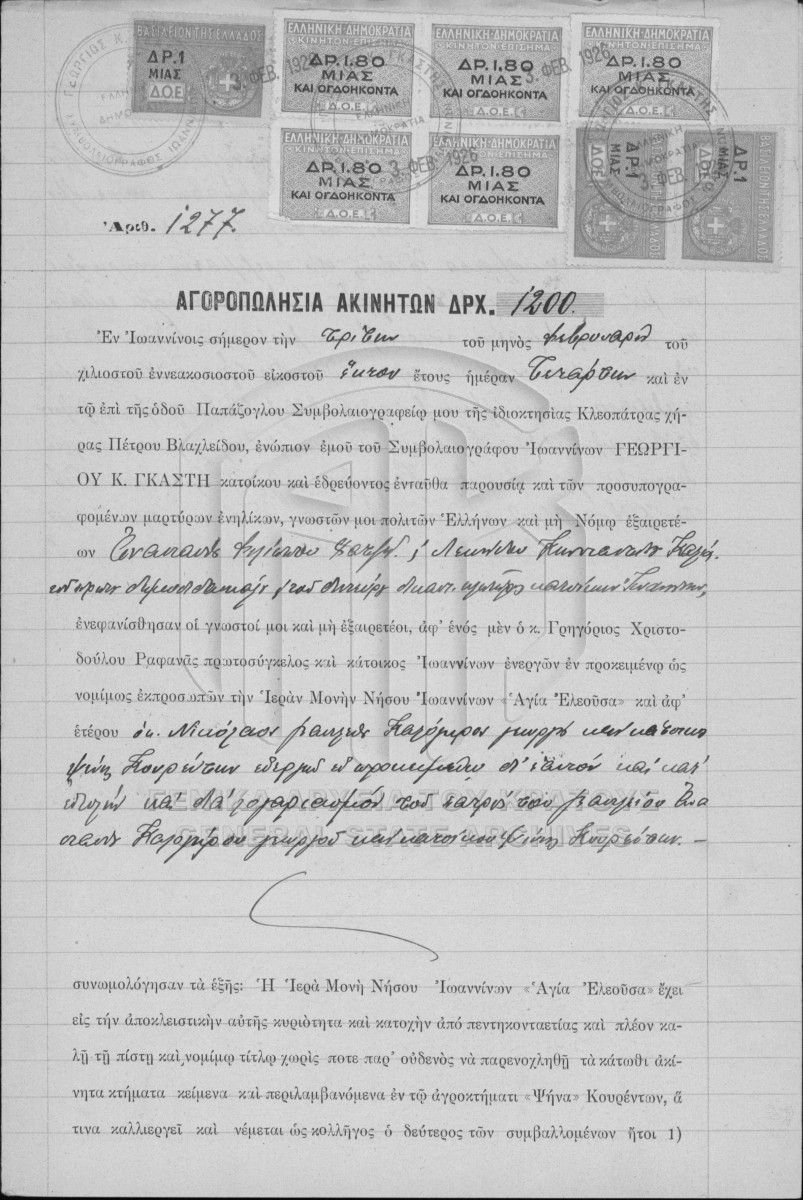 ΒΑΣΙΛΕΙΟΝ ΤΗΣ ΕΛΛΑΔΟΣ
ΔΡ.1
ΜΙΑΣ
Δ.Ο.Ε
ΕΛΛΗΝΙΚΗ·ΔΗΜΟΚΡΑΤΙΑ
ΚΙΝΗΤΟΝ ΕΠΙΣΗΜΑ
ΔΡ.1.80
ΜΙΑΣ
ΚΑΙ ΟΓΔΟΗΚΟΝΤΑ
Δ.Ο.Ε.
ΕΛΛΗΝΙΚΗ·ΔΗΜΟΚΡΑΤΙΑ
ΚΙΝΗΤΟΝ ΕΠΙΣΗΜΑ
ΔΡ.1.80
ΜΙΑΣ
ΚΑΙ ΟΓΔΟΗΚΟΝΤΑ
Δ.Ο.Ε.
ΕΛΛΗΝΙΚΗ·ΔΗΜΟΚΡΑΤΙΑ
ΚΙΝΗΤΟΝ ΕΠΙΣΗΜΑ
ΔΡ.1.80
ΜΙΑΣ
ΚΑΙ ΟΓΔΟΗΚΟΝΤΑ
Δ.Ο.Ε.
3. ΦΕΒ. 1926
3. ΦΕΒ. 1926
ΕΛΛΗΝΙΚΗ·ΔΗΜΟΚΡΑΤΙΑ
ΚΙΝΗΤΟΝ ΕΠΙΣΗΜΑ
ΔΡ.1.80
ΜΙΑΣ
ΚΑΙ ΟΓΔΟΗΚΟΝΤΑ
Δ.Ο.Ε.
ΕΛΛΗΝΙΚΗ·ΔΗΜΟΚΡΑΤΙΑ
ΚΙΝΗΤΟΝ ΕΠΙΣΗΜΑ
ΔΡ.1.80
ΜΙΑΣ
ΚΑΙ ΟΓΔΟΗΚΟΝΤΑ
Δ.Ο.Ε.
3. ΦΕΒ. 1926
ΒΑΣΙΛΕΙΟΝ ΤΗΣ ΕΛΛΑΔΟΣ
ΔΡ.1
ΜΙΑΣ
Δ.Ο.Ε
ΒΑΣΙΛΕΙΟΝ ΤΗΣ ΕΛΛΑΔΟΣ
ΔΡ.1
ΜΙΑΣ
Δ.Ο.Ε
3. ΦΕΒ.
Ἀριθ. 1277.
ΑΓΟΡΟΠΩΛΗΣΙΑ ΑΚΙΝΗΤΩΝ ΔΡΧ. 1200.
Ἐν Ἰωαννίνοις σήμερον τὴν τρίτην τοῦ μηνὸς Φεβρουαρίου τοῦ
χιλιοστοῦ ἐννεακοσιοστοῦ εἰκοστοῦ ἕκτου ἔτους ἡμέραν Τετάρτην καὶ ἐν
τῷ ἐπὶ τῆς ὁδοῦ Παπάζογλου Συμβολαιογραφείῳ μου τῆς ἰδιοκτησίας Κλεοπάτρας χή-
ρας Πέτρου Βλαχλείδου, ἐνώπιον ἐμοῦ τοῦ Συμβολαιογράφου Ἰωαννίνων ΓΕΩΡΓΙ-
ΟΥ Κ. ΓΚΑΣΤΗ κατοίκου καὶ ἑδρεύοντος ἐνταῦθα παρουσίᾳ καὶ τῶν προσυπογρα-
φομένων μαρτύρων ἐνηλίκων, γνωστῶν μοι πολιτῶν Ἑλλήνων καὶ μὴ Νόμῳ ἐξαιρετέ-
ων
κατοίκων Ἰωαννίνων,
ἐνεφανίσθησαν οἱ γνωστοί μοι καὶ μὴ ἐξαιρετέοι, ἀφ' ἑνὸς μὲν ὁ κ. Γρηγόριος Χριστο-
δούλου Ραφανᾶς πρωτοσύγκελος καὶ κάτοικος Ἰωαννίνων ἐνεργῶν ἐν προκειμένῳ ὡς
νομίμως ἐκπροσωπῶν τὴν Ἱερὰν Μονὴν Νήσου Ἰωαννίνων «Ἁγία Ἐλεοῦσα» καὶ ἀφ'
ἑτέρου ὁ κ. Νικόλαος Καλόγηρος γεωργὸς καὶ κάτοικος
Ψήνης Κουρέντων ἐν προκειμένῳ δι' ἑαυτὸν καὶ κατ'
ἐντολὴν καὶ διὰ λογαριασμὸν τοῦ πατρός του
Καλογήρου γεωργοῦ καὶ κατοίκου Ψήνης Κουρέντων.—
ΓΕΝΙΚΑ ΑΡΧΕΙΑ ΤΟΥ ΚΡΑΤΟΥΣ
GENERAL STATE ARCHIVES
συνωμολόγησαν τὰ ἑξῆς: Ἡ Ἱερὰ Μονὴ Νήσου Ἰωαννίνων «Ἁγία Ἐλεοῦσα» ἔχει
εἰς τὴν ἀποκλειστικὴν αὐτῆς κυριότητα καὶ κατοχὴν ἀπὸ πεντηκονταετίας καὶ πλέον κα-
λῇ τῇ πίστῃ καὶ νομίμῳ τίτλῳ χωρὶς ποτε παρ' οὐδενὸς νὰ παρενοχληθῇ τὰ κάτωθι ἀκί-
νητα κτήματα κείμενα καὶ περιλαμβανόμενα ἐν τῷ ἀγροκτήματι «Ψήνα» Κουρέντων, ἅ
τινα καλλιεργεῖ καὶ νέμεται ὡς κολλῆγος ὁ δεύτερος τῶν συμβαλλομένων ἤτοι 1)